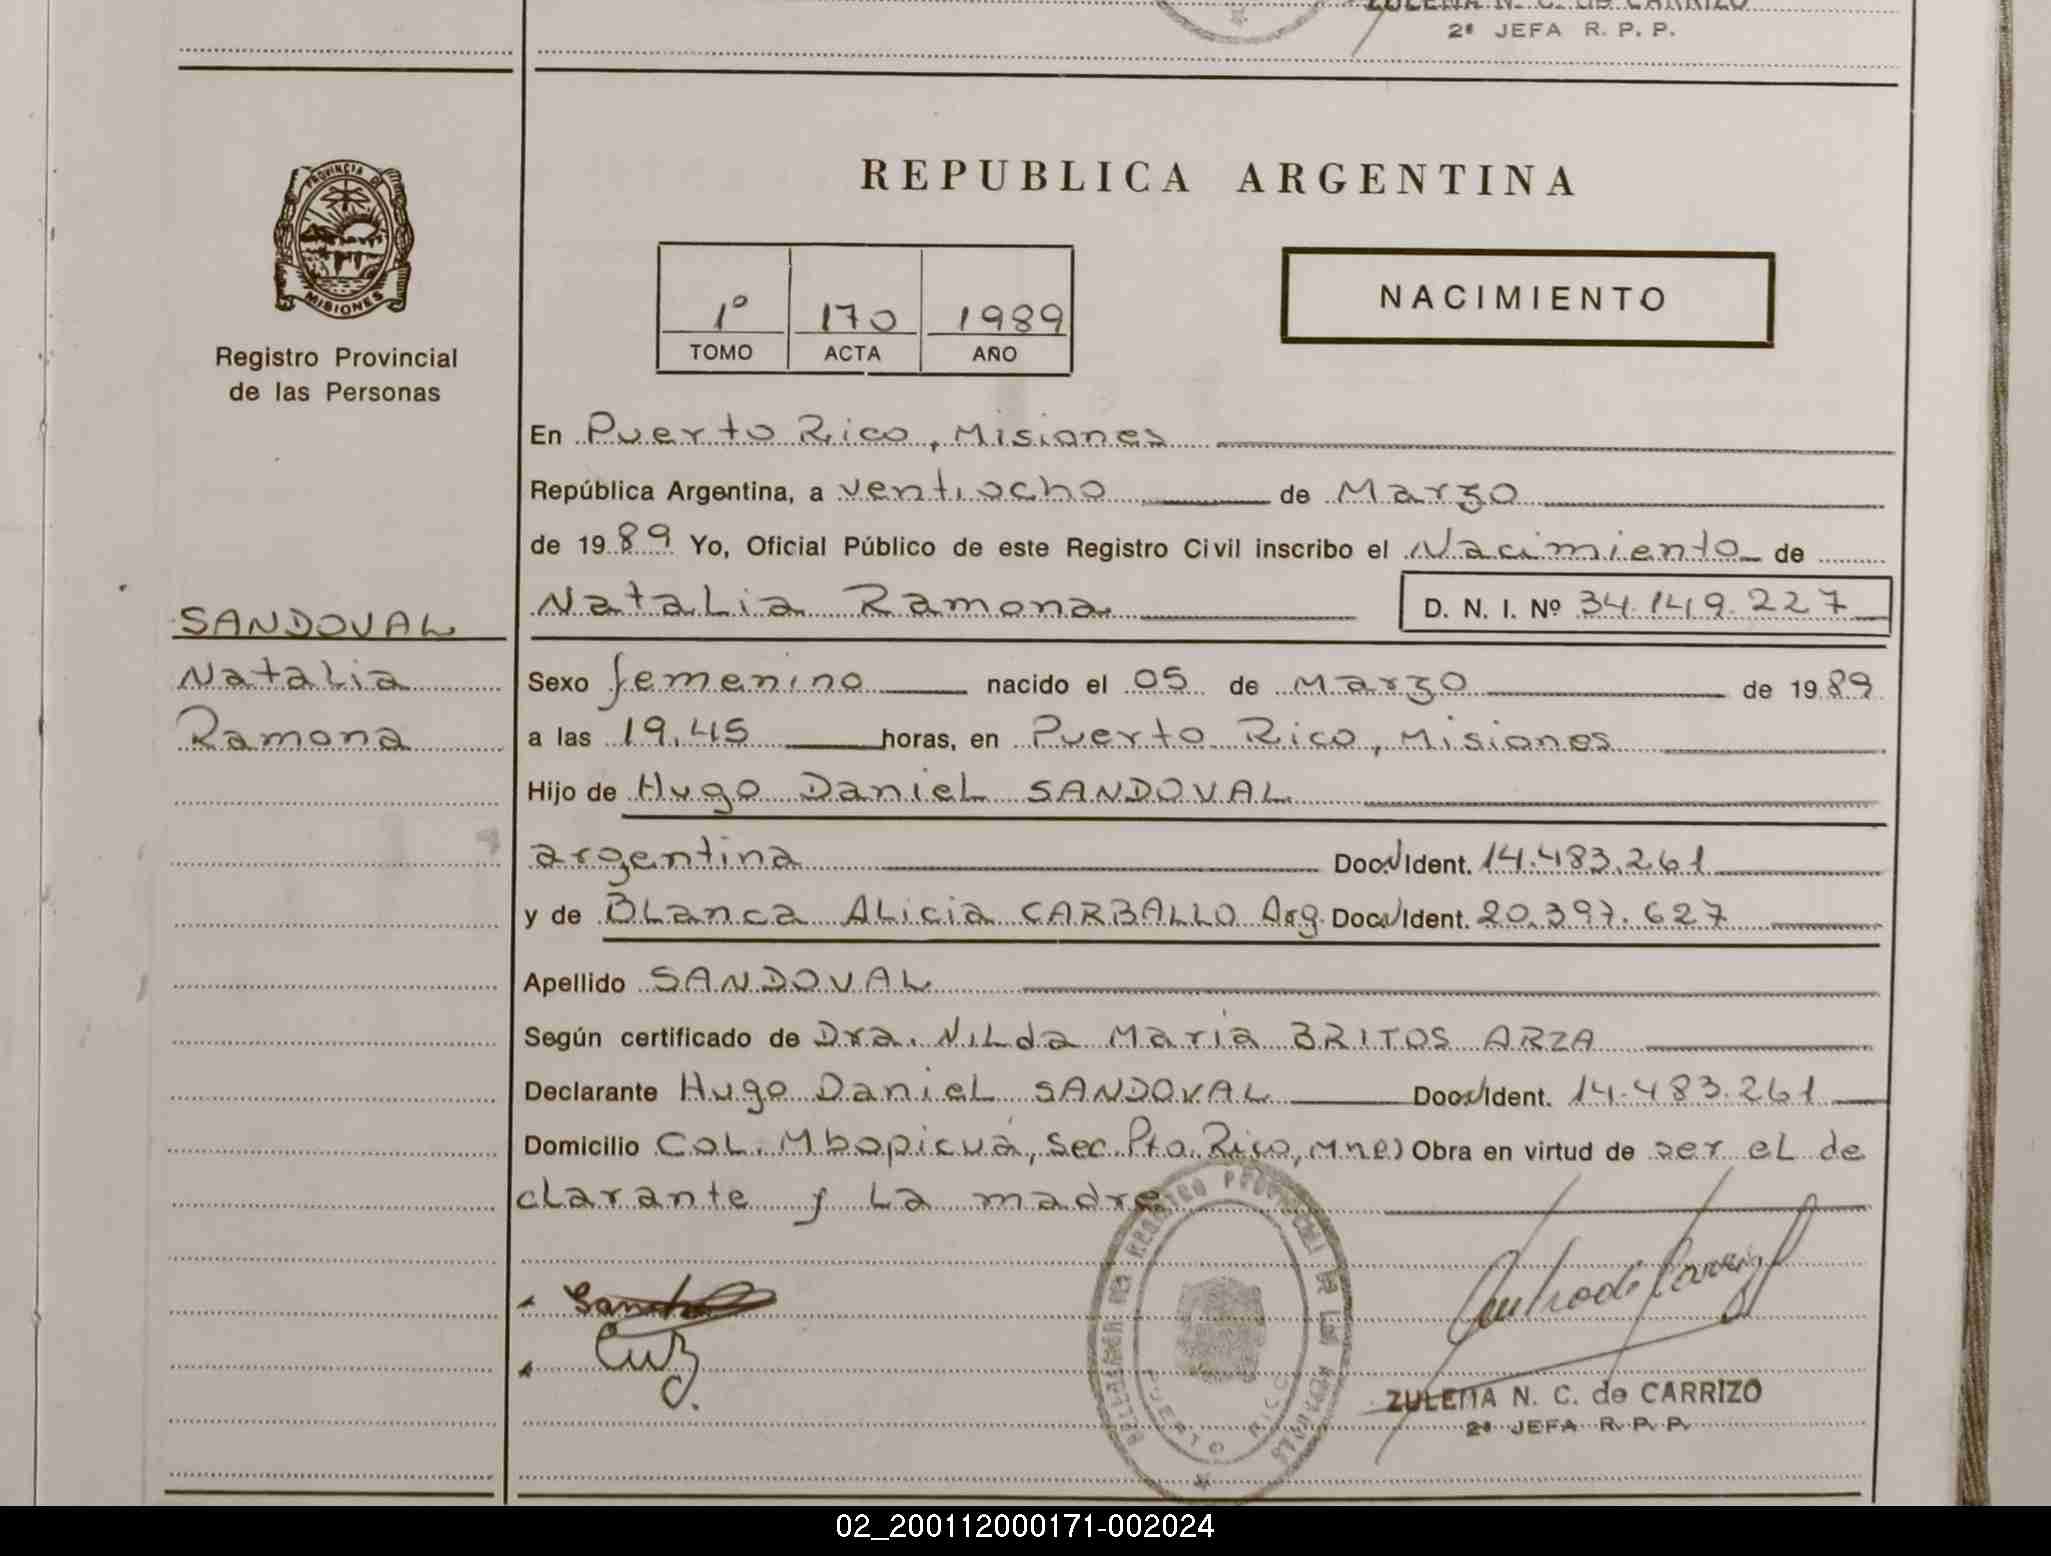 ZULEMA N. C. de CARRIZO
2ª JEFA R. P. P.
PROVINCIA DE
MISIONES
Registro Provincial
de las Personas
REPUBLICA ARGENTINA
1º 170 1989
TOMO ACTA AÑO
NACIMIENTO
En Puerto Rico, Misiones
República Argentina, a ventiocho de Marzo
de 1989 Yo, Oficial Público de este Registro Civil inscribo el Nacimiento de
Natalia Ramona D. N. I. Nº 34.149.227
SANDOVAL
Natalia
Ramona
Sexo femenino nacido el 05 de Marzo de 1989
a las 19,45 horas, en Puerto Rico, Misiones
Hijo de Hugo Daniel SANDOVAL
argentina Doc. Ident. 14.483.261
y de Blanca Alicia CARBALLO Arg. Doc. Ident. 20.397.627
Apellido SANDOVAL
Según certificado de Dra. Nilda María BRITOS ARZA
Declarante Hugo Daniel SANDOVAL Doc. Ident. 14.483.261
Domicilio Col. Mbopicuá, Sec. Pto. Rico, Mnes Obra en virtud de ser el de
clarante y la madre
REGISTRO PROVINCIAL DE LAS PERSONAS
PUERTO RICO
ZULEMA N. C. de CARRIZO
2ª JEFA R. P. P.
02_200112000171-002024